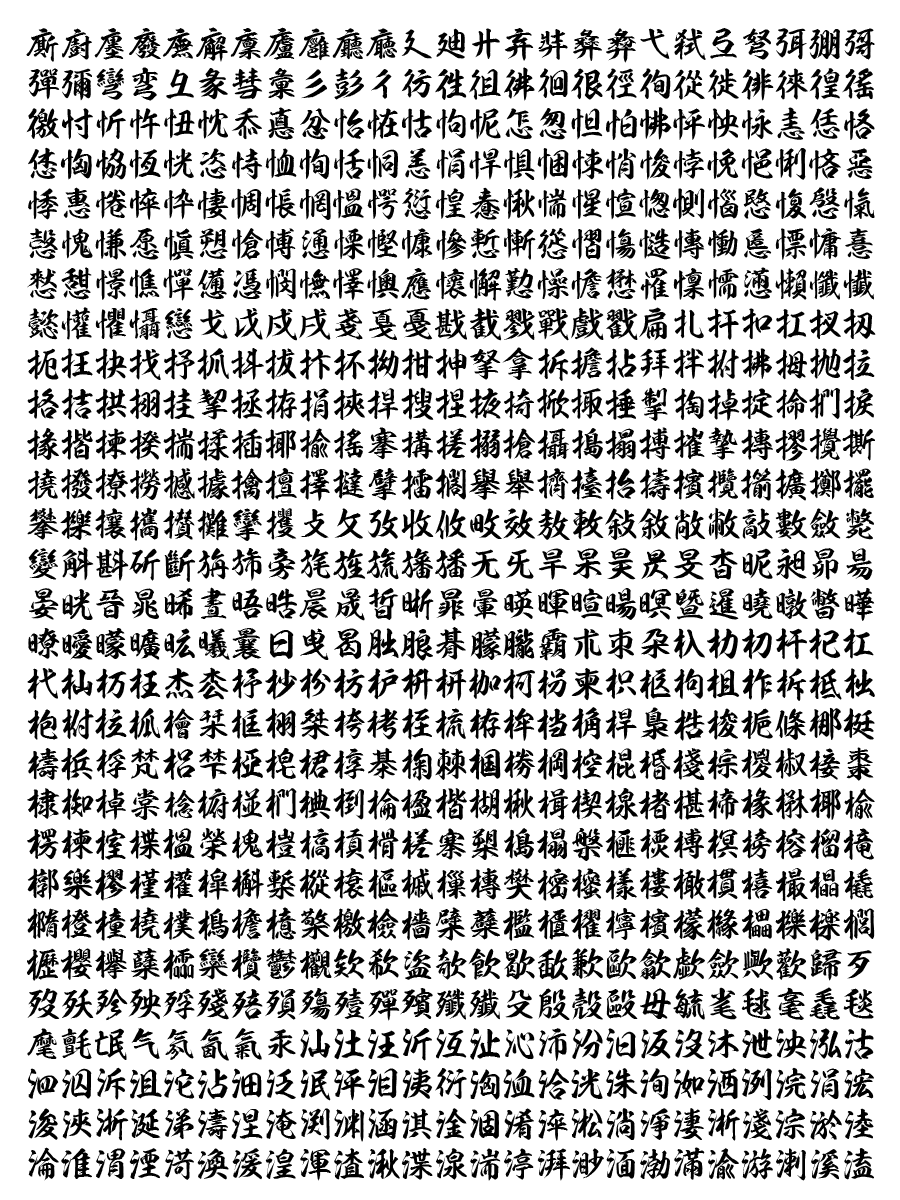 廝廚廛廢廡廨廩廬廱廳廰廴廸廾弃弉彝彜弋弑弖弩弭弸彁
彈彌彎弯彑彖彗彙彡彭彳彷徃徂彿徊很徑徇從徙徘徠徨徭
徼忖忻忤忸忱忝悳忿怡恠怙怐怩怎怱怛怕怫怦怏怺恚恁恪
恷恟恊恆恍恣恃恤恂恬恫恙悁悍惧悃悚悄悛悖悗悒悧悋惡
悸惠惓悴忰悽惆悵惘慍愕愆惶惷愀惴惺愃愡惻惱愍愎慇愾
愨愧慊愿愼愬愴愽慂慄慳慷慘慙慚慫慴慯慥慱慟慝慓慵憙
憖憇憬憔憚憊憑憫憮懌懊應懷懈懃懆憺懋罹懍懦懣懶懺懴
懿懽懼懾戀戈戉戍戌戔戛戞戡截戮戰戲戳扁扎扞扣扛扠扨
扼抂抉找抒抓抖拔抃抔拗拑抻拏拿拆擔拈拜拌拊拂拇抛拉
挌拮拱挧挂挈拯拵捐挾捍搜捏掖掎掀掫捶掣掏掉掟掵捫捩
掾揩揀揆揣揉插揶揄搖搴搆搓搦搶攝搗搨搏摧摯摶摎攪撕
撓撥撩撈撼據擒擅擇撻擘擂擱擧舉擠擡抬擣擯攬擶擴擲擺
攀擽攘攜攅攤攣攫攴攵攷收攸畋效敖敕敍敘敞敝敲數斂斃
變斛斟斫斷旃旆旁旄旌旒旛旙无旡旱杲昊昃旻杳昵昶昴昜
晏晄晉晁晞晝晤晧晨晟晢晰暃暈暎暉暄暘暝曁暹曉暾暼曄
暸曖曚曠昿曦曩曰曳曷朏朖朞朦朧霸朮朿朶杁朸朷杆杞杠
杙杣杤枉杰枩杼杪枌枋枦枡枅枷柯枴柬枳柩枸柤柞柝柢柮
枹柎柆柧檜栞框栩桀桍栲桎梳栫桙档桷桿梟梏梭梔條梛梃
檮梹桴梵梠梺椏梍桾椁棊椈棘椢椦棡椌棍棔棧棕椶椒椄棗
棣椥棹棠棯椨椪椚椣椡棆楹楷楜楸楫楔楾楮椹楴椽楙椰楡
楞楝榁楪榲榮槐榿槁槓榾槎寨槊槝榻槃榧樮榑榠榜榕榴槞
槨樂樛槿權槹槲槧樅榱樞槭樔槫樊樒櫁樣樓橄樌橲樶橸橇
橢橙橦橈樸樢檐檍檠檄檢檣檗蘗檻櫃櫂檸檳檬櫞櫑櫟檪櫚
櫪櫻欅蘖櫺欒欖鬱欟欸欷盜欹飮歇歃歉歐歙歔歛歟歡歸歹
歿殀殄殃殍殘殕殞殤殪殫殯殲殱殳殷殼毆毋毓毟毬毫毳毯
麾氈氓气氛氤氣汞汕汢汪沂沍沚沁沛汾汨汳沒沐泄泱泓沽
泗泅泝沮沱沾沺泛泯泙泪洟衍洶洫洽洸洙洵洳洒洌浣涓浤
浚浹浙涎涕濤涅淹渕渊涵淇淦涸淆淬淞淌淨淒淅淺淙淤淕
淪淮渭湮渮渙湲湟渾渣湫渫湶湍渟湃渺湎渤滿渝游溂溪溘